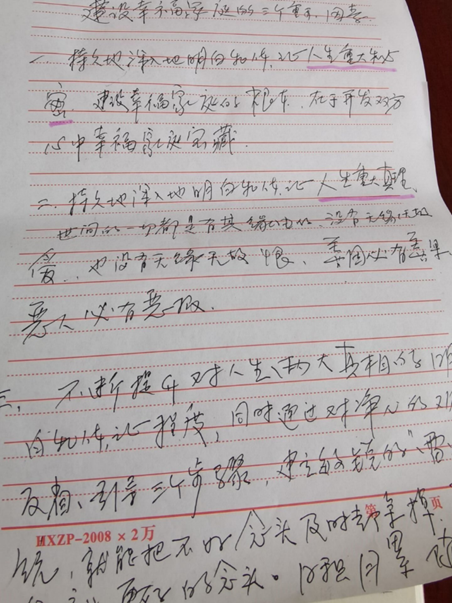 建设幸福家庭的三个重要因素
一、持久地深入地明白和体证人生重大秘
密。建设幸福家庭的根本，在于开发双方
心中幸福家庭宝藏.
二、持久地深入地明白和体证人生重大真理.
世间的一切都是有其缘由的，没有无缘无故
爱，也没有无缘无故恨、善因必有善果
恶人必有恶报.
三、不断提升对人生两大真相的明
白和体证程度，同时通过对净心的
反省、三个步骤，建立
MXZP-2008×2万 第 页
统，就能把不好念头及时拿掉
的念头。日积月累